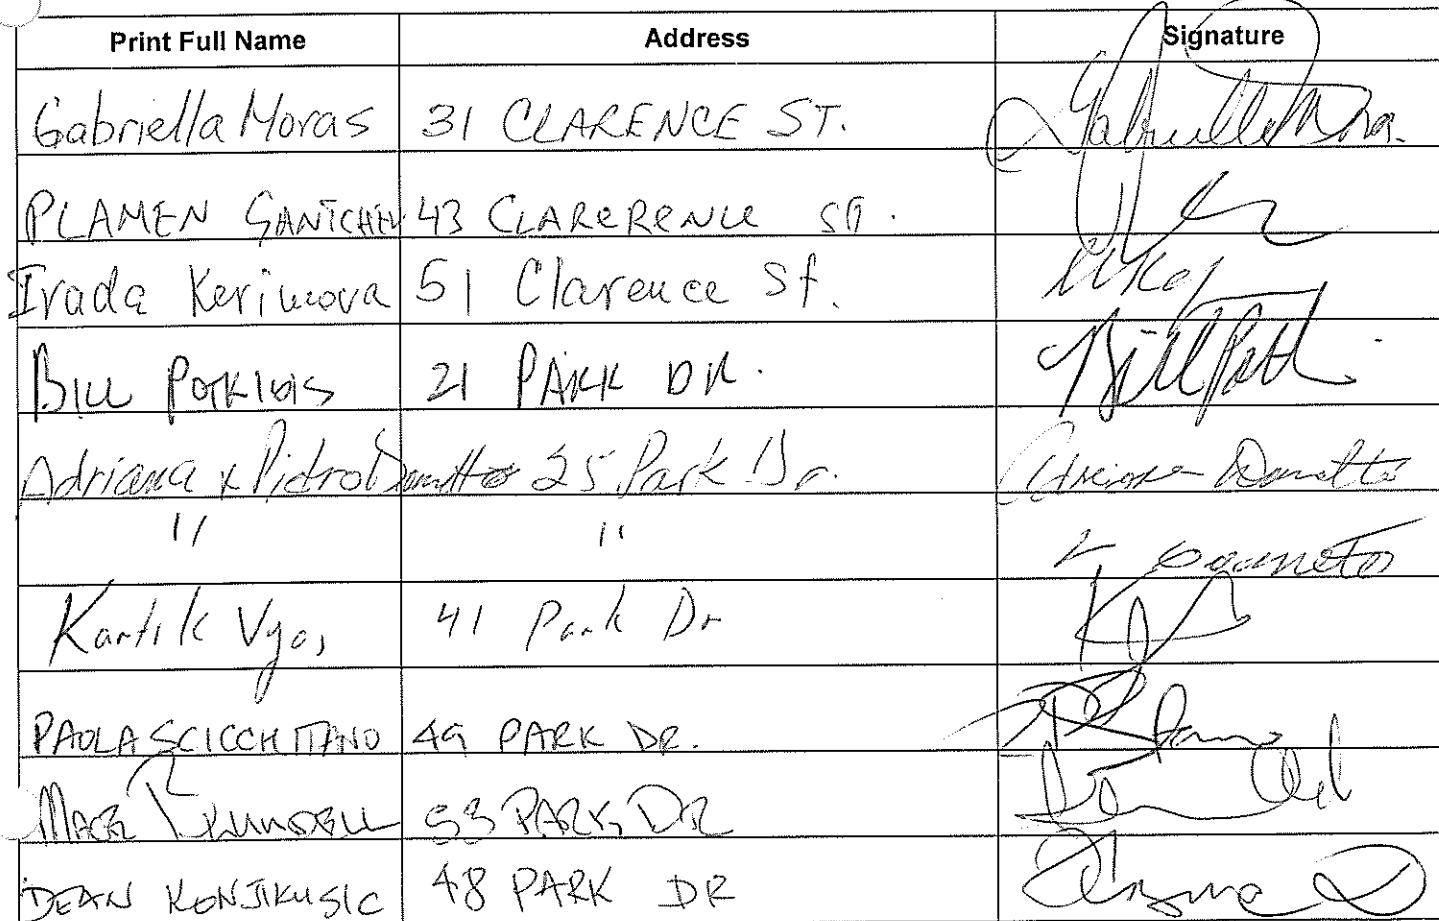 Print Full Name Address Signature
Gabriella Moras 31 CLARENCE ST.
PLAMEN GANTCHEV 43 CLARERENCE ST.
Irada Kerimova 51 Clarence St.
BILL 21 PARK DR. Bill
Adriana & Pietro Donatto 25 Park Dr. Adriana Donatto
" "
Kartik Vyas 41 Park Dr
PAOLA SCICCHITANO 49 PARK DR.
MARK 53 PARK DR
DEAN KONJIKUSIC 48 PARK DR